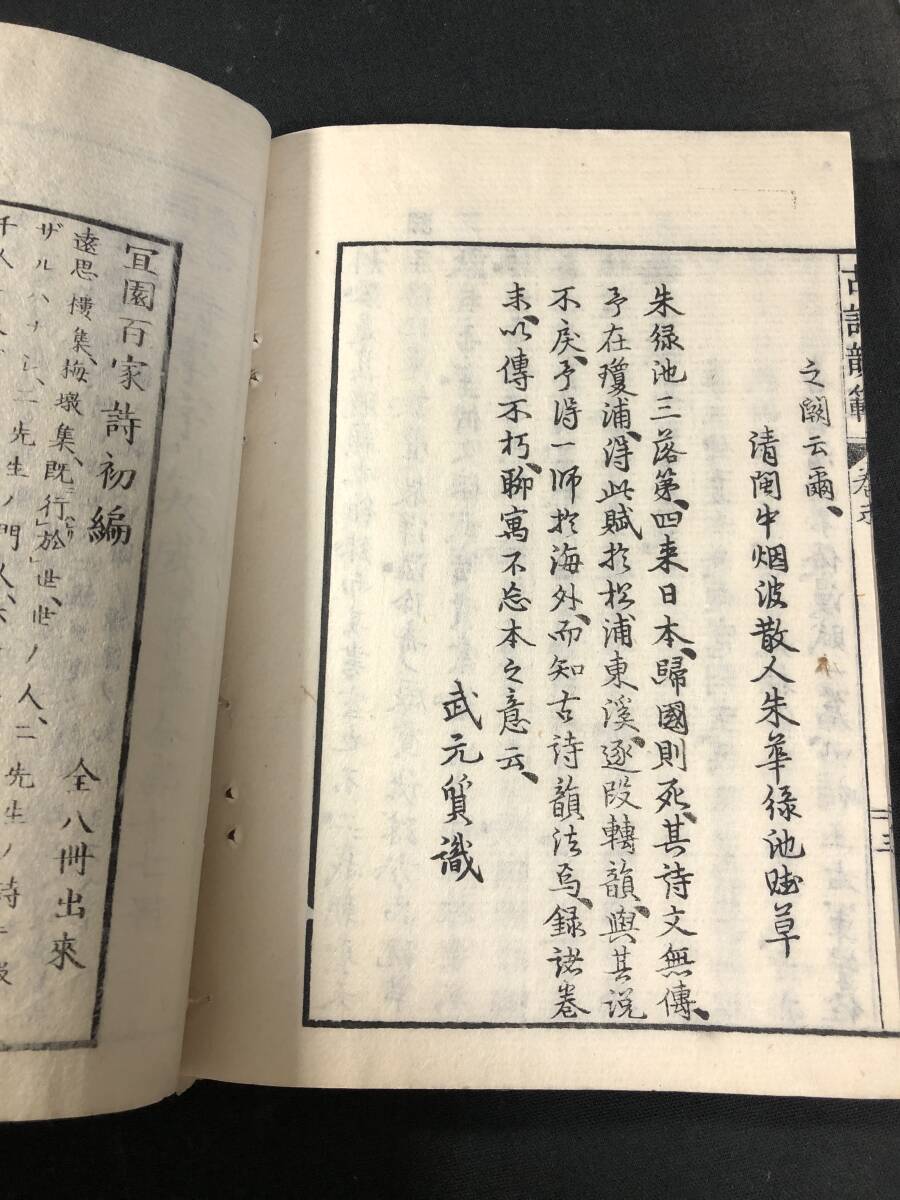 古詩韻範
卷末
三
之闕云爾、
清閩中烟波散人朱華綠池賦草
朱綠池三落第、四来日本、歸國則死、其詩文無傳、
予在瓊浦、得此賦於松浦東溪、逐段轉韻、與其說
不戾、予得一師於海外、而知古詩韻法焉、録諸卷
末、以傳不朽、聊寓不忘本之意云、
武元質識
宜園百家詩初編
全八冊出來
遠思樓集、梅墩集、既行於世、世ノ人、二先生ノ詩
ザルハナシ、二先生ノ門人
千人